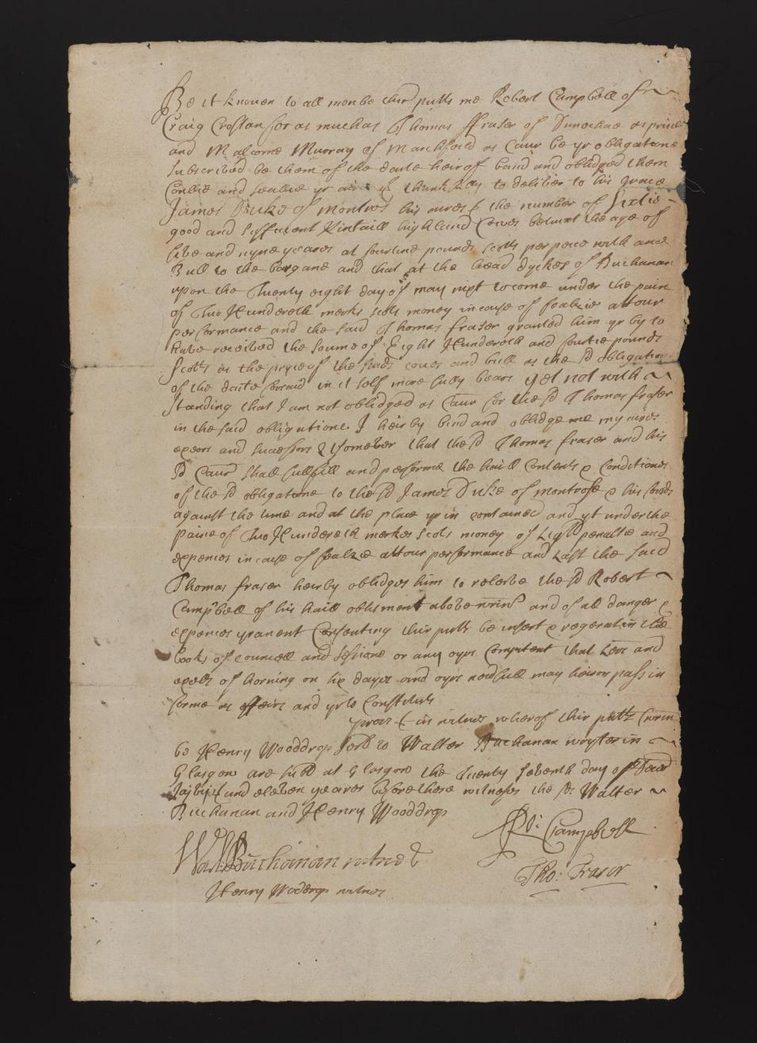 Be it knowen to all men be thir putts me Robert Campbell of
Craig Crostan for as much as Thomas ffraser of Dunochae as prin
and Malcome Murray of Marchfeild as Caur be yr obligatione
subscrived be them of the date heirof band and oblidged them
Conllie and seallie yr to deliver to his grace
James Duke of Montros his aires & the number of Sixtie
good and sufficient Kintaill highland Cowes betwixt the age of
five and nyne yeares at fourtine pounds scots per peice with ane
Bull to the bargane and that at the head dyckes of Buchanan
upon the Twenty eight day of may nixt to come under the pain
of Two Hundereth merks scots money in caise of fealzie attour
performance and the said Thomas fraser granted him yr by to
have received the soume of Eight Hundereth and fourtie pounds
Scotts as the pryce of the saids cowes and bull as the sd obligation
of the date forsaid in it self more fully bears yet not with
standing that I am not oblidged as Caur for the sd Thomas fraser
in the said obligatione I heirby bind and oblidge me my aires
exers and successors & that the sd Thomas fraser and his
sd Caur shall fullfill and performe the haill contents & conditiones
of the sd obligatione to the sd James Duke of montrose & his forsds
against the time and at the place yr in contained and yt under the
paine of Two Hundereth merkes scots money of penaltie and
expenses in caise of fealzie attour performance and Last the said
Thomas fraser heirby oblidges him to releive the sd Robert
Campbell of his haill oblisment above and of all danger &
expenses yranent Consenting thir putts be insert & regerat in the
books of councell and sessione or any oyrs Competent that Lers and
exells of horning on six dayes and oyrs neidfull may heiron pass in
forme as effeirs and yrto Constituts
prors & in witnes wherof thir putts
be Henry Wooddrop servt to Walter Buchanan wryter in
Glasgow are subt at Glasgow the Twenty seventh day of
and eleven yeares before these witnesses the sd Walter
Buchanan and Henry Wooddrop
Ro: Campbell
Walt Buchanan witnes
Tho: Fraser
Henry Wodrop witnes